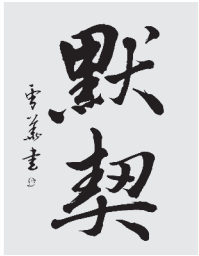 默契
雪華書